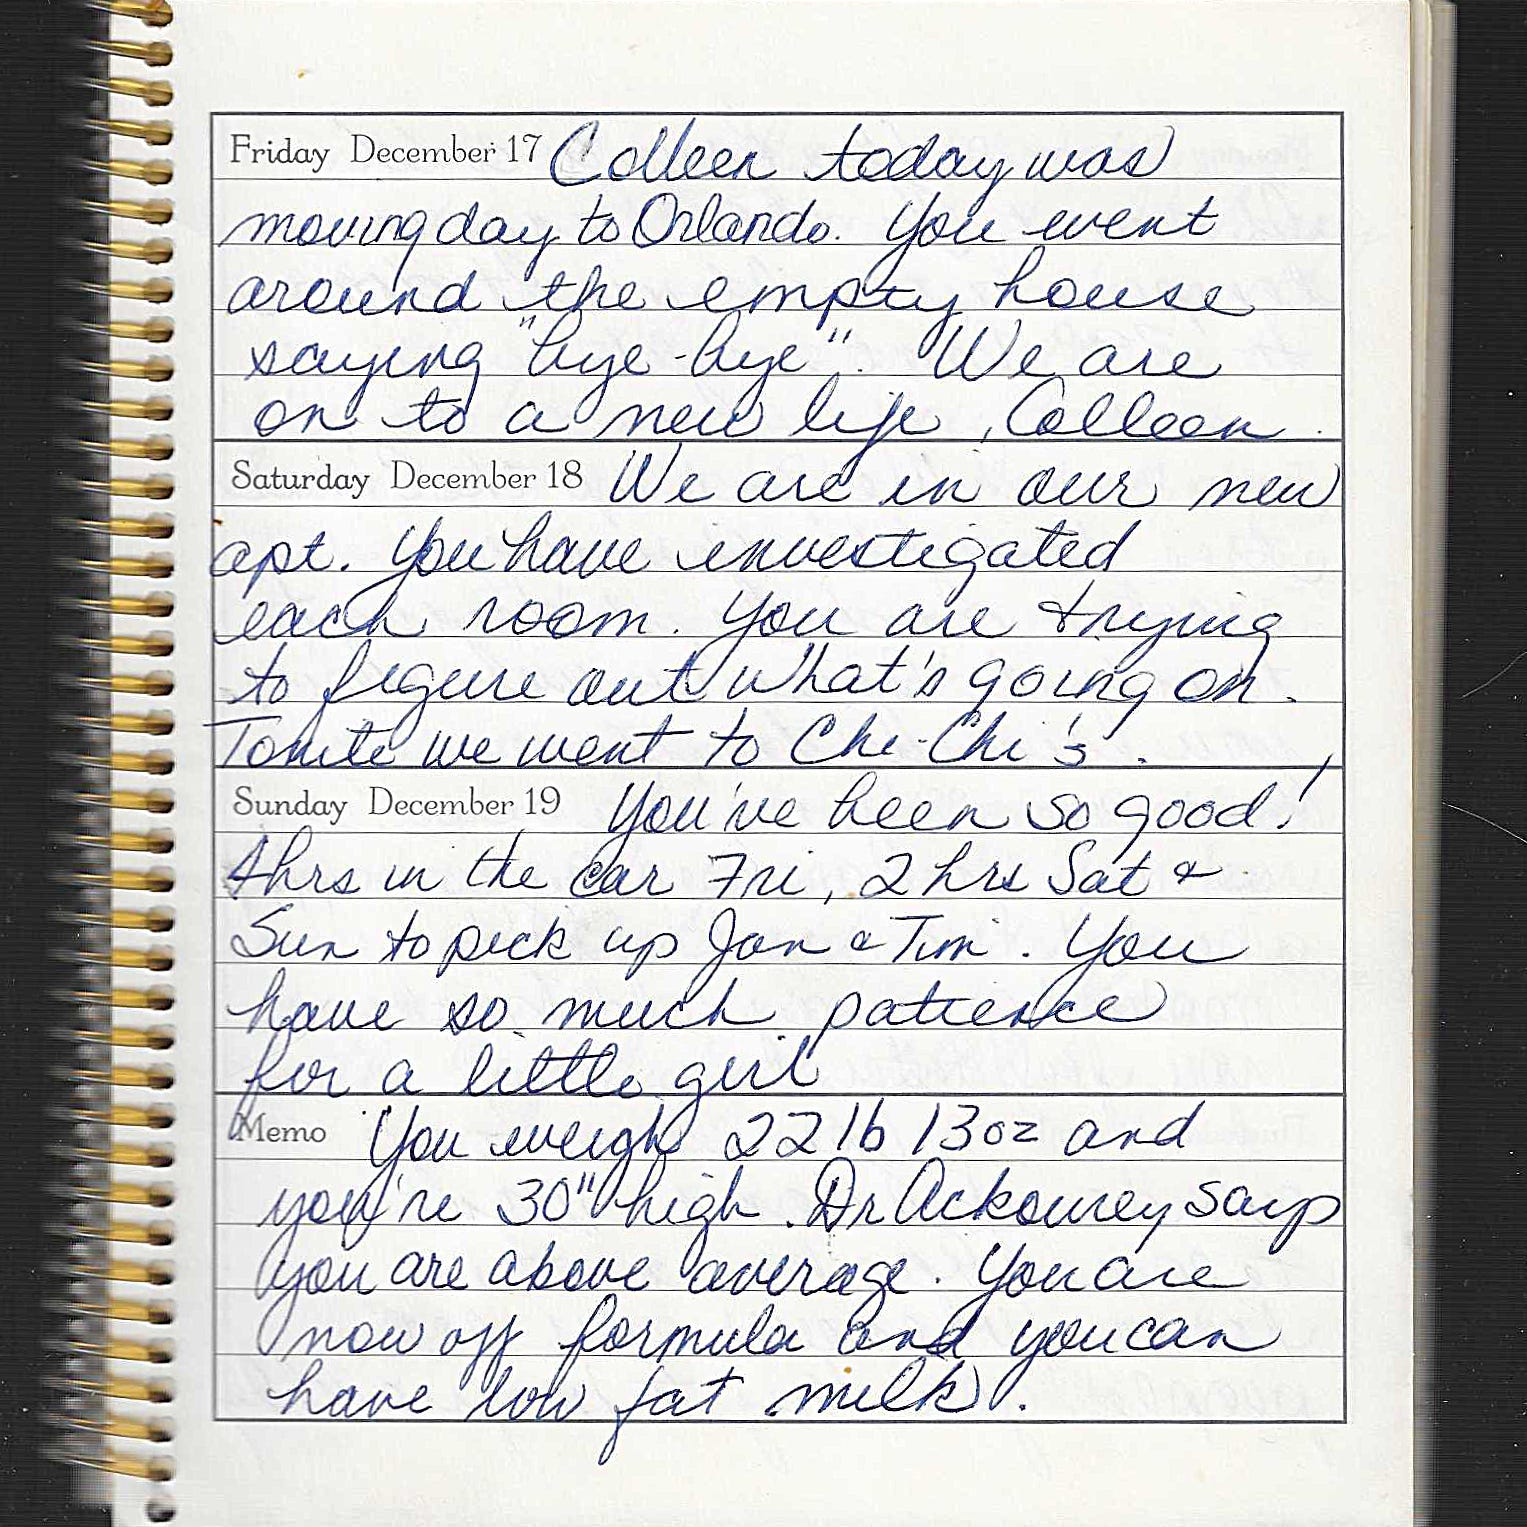 Friday December 17 Colleen today was
moving day to Orlando. You went
around the empty house
saying "bye-bye". We are
on to a new life, Colleen.
Saturday December 18 We are in our new
apt. You have investigated
each room. You are trying
to figure out what's going on.
Tonite we went to Chi-Chi's.
Sunday December 19 You've been so good!
4hrs in the car Fri, 2 hrs Sat &
Sun to pick up Jan & Tim. You
have so much patience
for a little girl
Memo You weigh 22 lb 13 oz and
you're 30" high. Dr Ackourey says
you are above average. You are
now off formula and you can
have low fat milk.